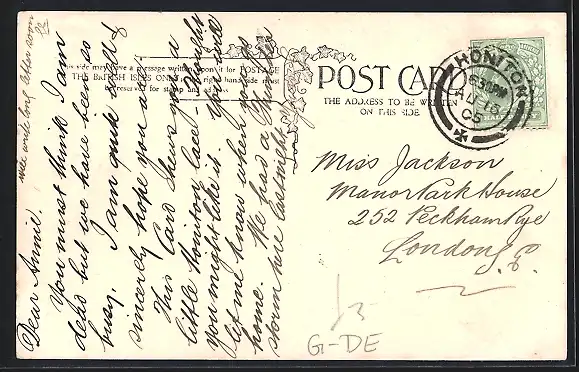 will write long letter soon
Dear Annie.
You must think I am
dead but we have been so
busy. I am quite well &
sincerely hope you are.
This Card shews you a
little Honiton lace, I thought
you might like it. You will
let me know when you get
home. We had a thunder
storm here last night
This side may have a message written upon it for POSTAGE
THE BRITISH ISLES ONLY. right hand side must
be reserved for stamp and address
POST CARD
THE ADDRESS TO BE WRITTEN
ON THIS SIDE.
HONITON
6 30 PM
AU 16
05
Miss Jackson
Manor Park House
252 Peckham Rye
London S.E.
13
G-DE